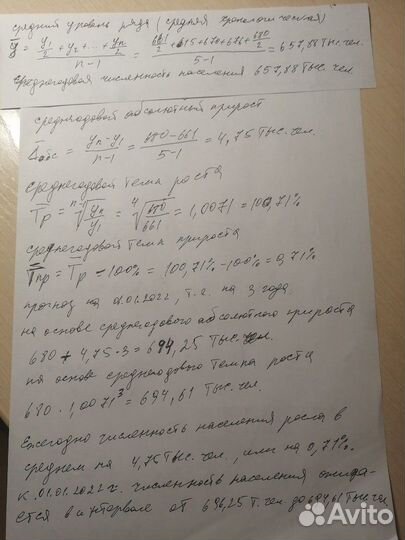 средний уровень ряда (средняя хронологическая)
ȳ = (y₁/2 + y₂ + ... + yₙ/2)/(n-1) = (661/2 + 615 + 670 + 676 + 680/2)/(5-1) = 657,88 тыс. чел.
среднегодовая численность населения 657,88 тыс. чел.
среднегодовой абсолютный прирост
Δабс = (yₙ-y₁)/(n-1) = (680-661)/(5-1) = 4,75 тыс. чел.
среднегодовой темп роста
T̄р = ⁿ√(yₙ/y₁) = ⁴√(680/661) = 1,0071 = 100,71%
среднегодовой темп прироста
T̄пр = T̄р - 100% = 100,71% - 100% = 0,71%
прогноз на 01.01.2022, т.е. на 3 года
на основе среднегодового абсолютного прироста
680 + 4,75·3 = 694,25 тыс. чел.
на основе среднегодового темпа роста
680 · 1,0071³ = 694,61 тыс. чел.
Ежегодно численность населения росла в
среднем на 4,75 тыс. чел., или на 0,71%.
К 01.01.2022 г. численность населения ожида-
ется в интервале от 696,25 т. чел. до 694,61 тыс. чел.
Avito